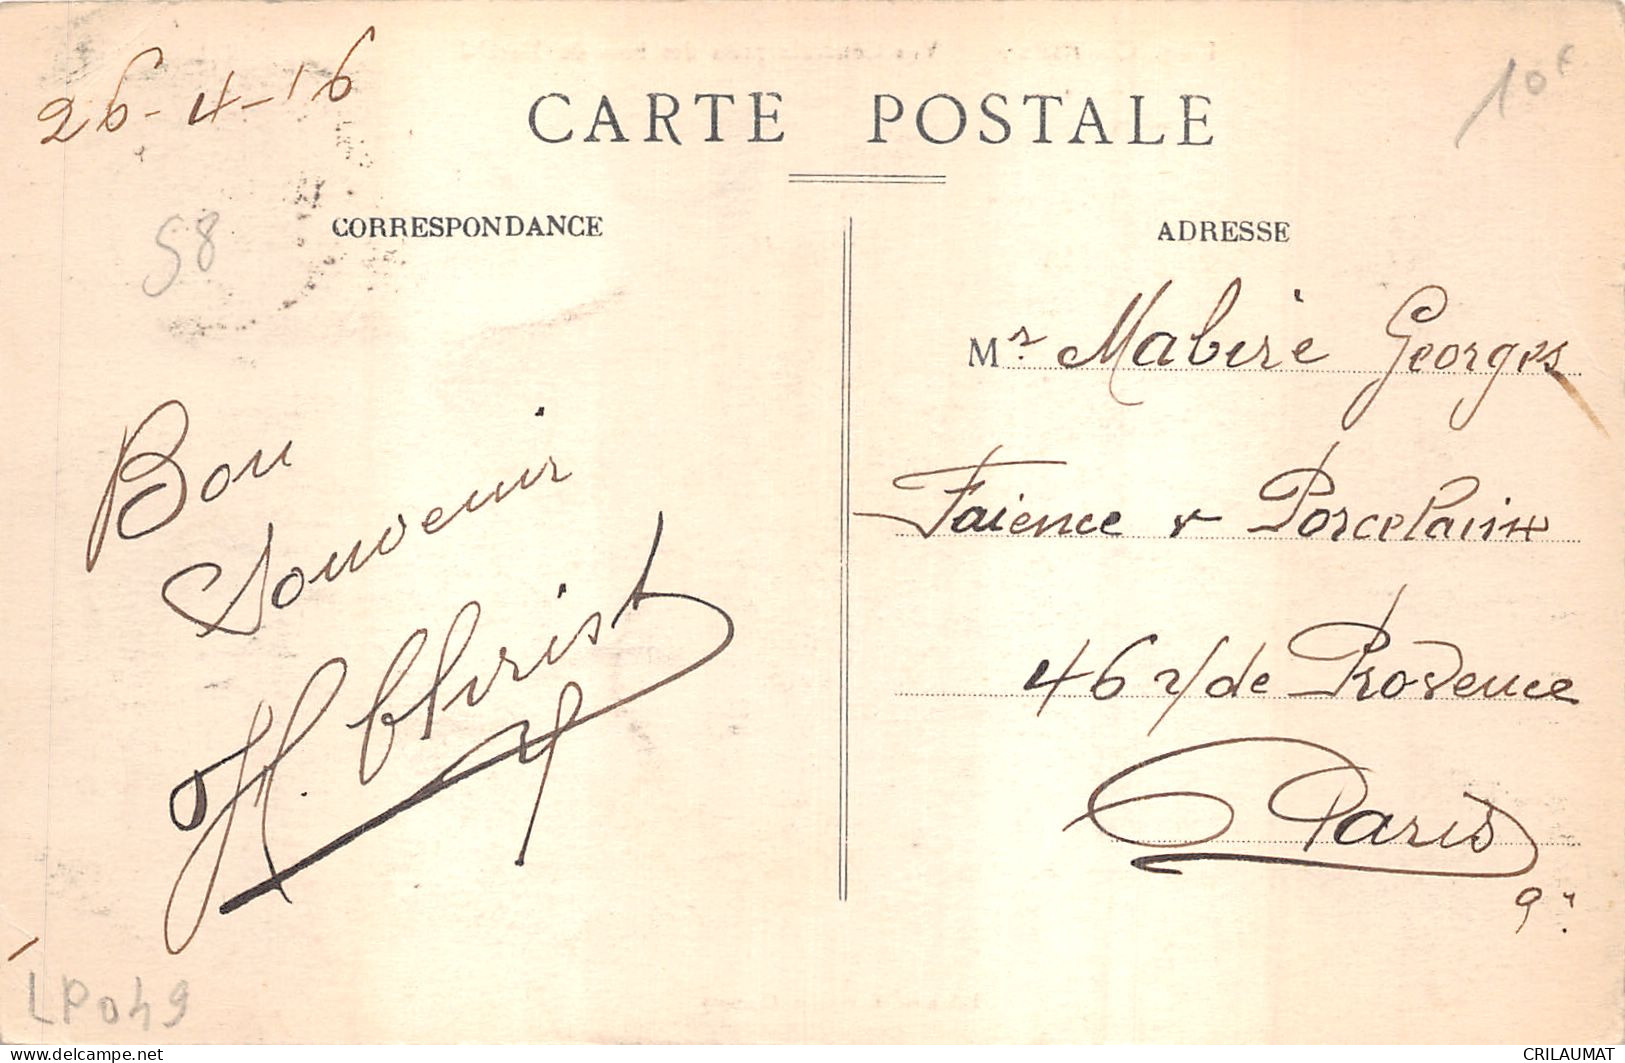 26-4-16
10 F
CARTE POSTALE
58
CORRESPONDANCE
ADRESSE
Mr. Mabire Georges
Faience & Porcelaine
46 r/ de Provence
Paris
9e
Bon
Souvenir
H.
LP049
delcampe.net
CRILAUMAT